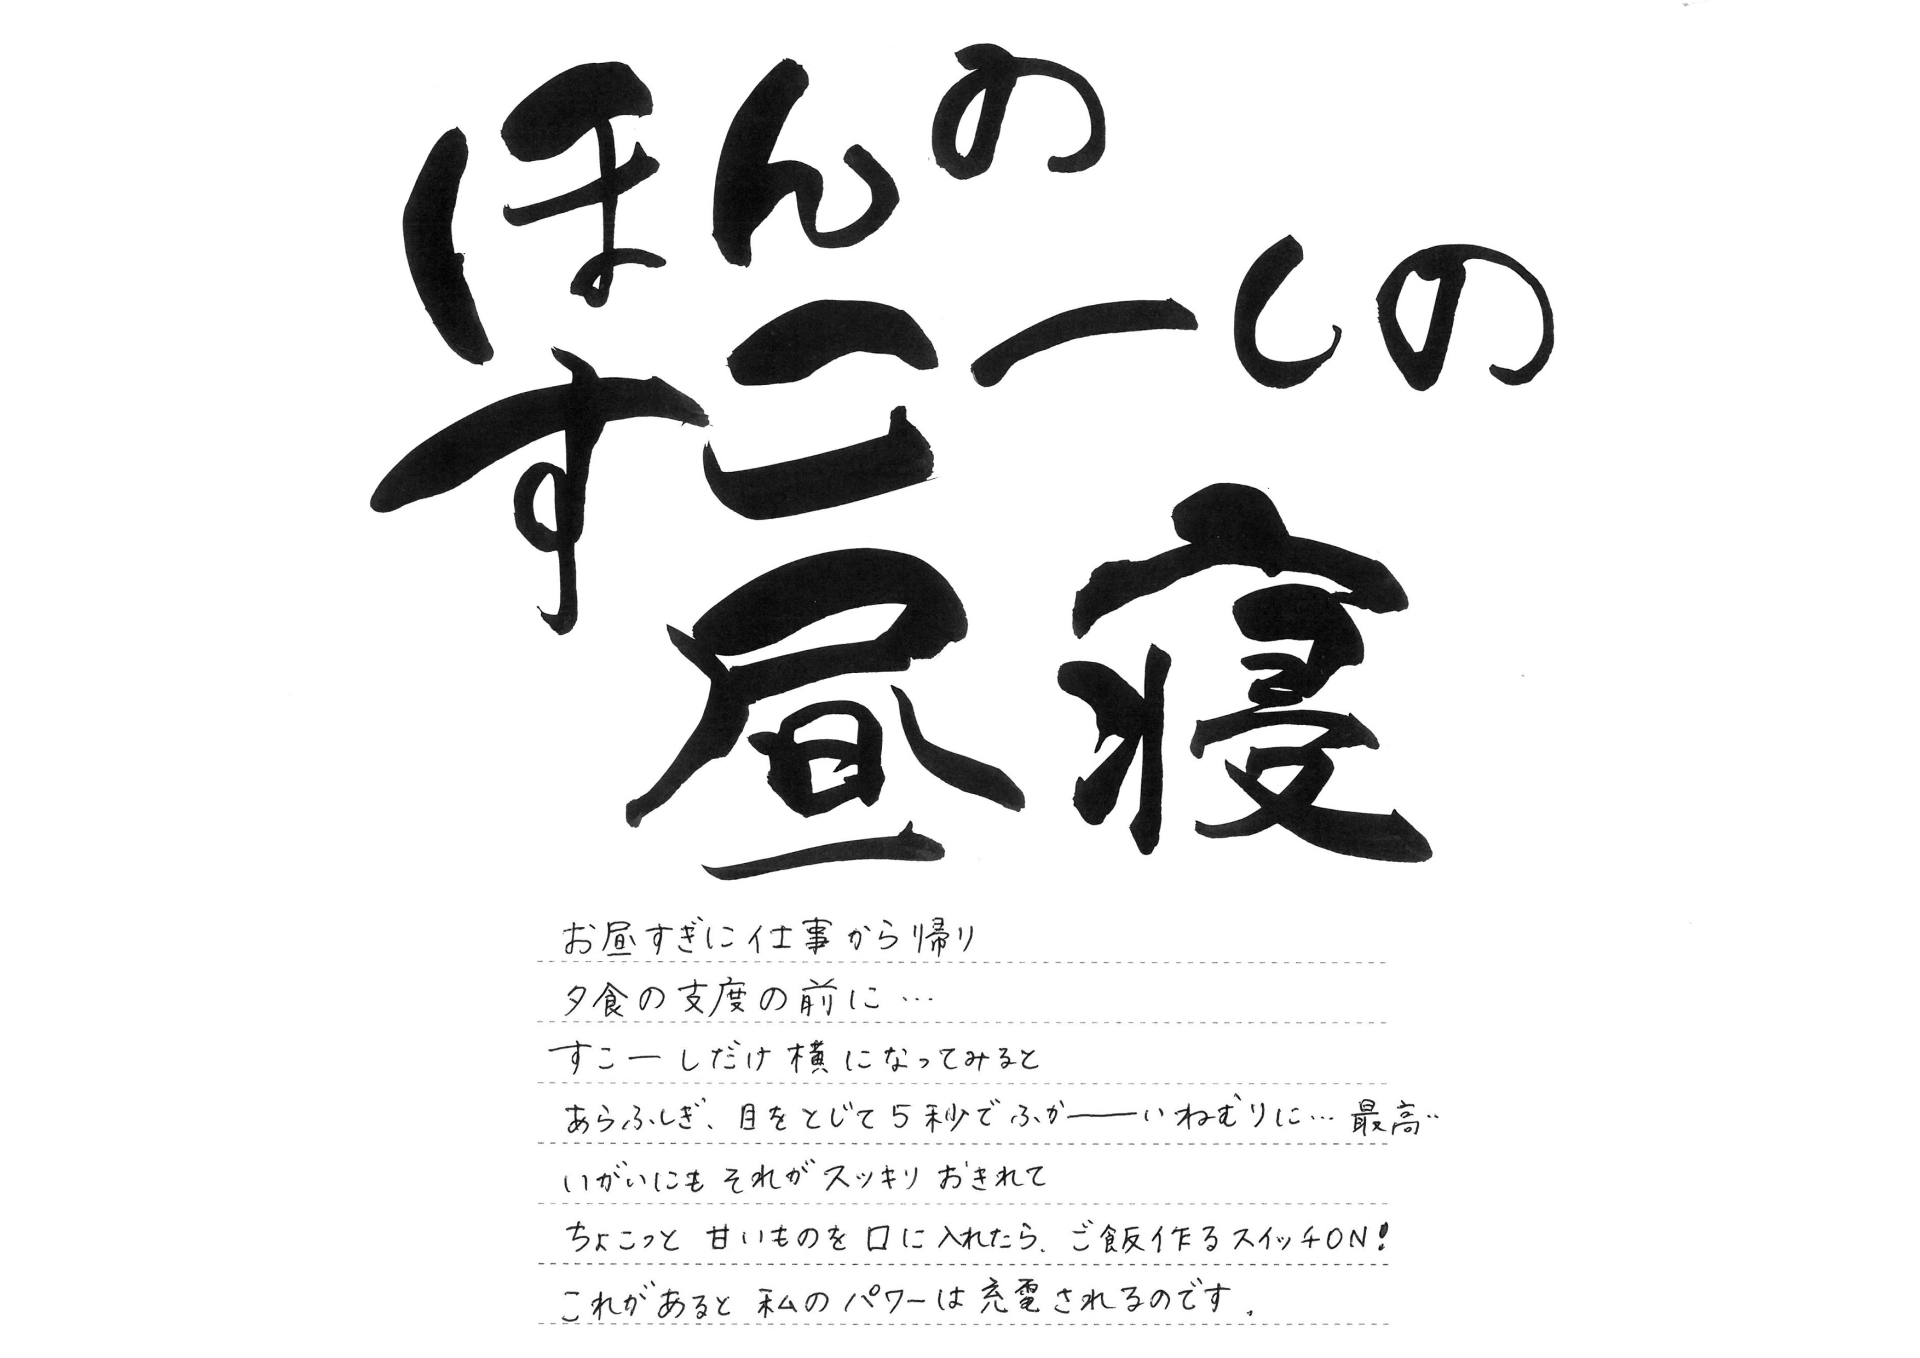 ほんの
すこーしの
昼寝
お昼すぎに仕事から帰り
夕食の支度の前に…
すこーしだけ横になってみると
あらふしぎ、目をとじて5秒でふかーーいねむりに…最高‥
いがいにもそれがスッキリおきれて
ちょこっと甘いものを口に入れたら、ご飯作るスイッチON!
これがあると私のパワーは充電されるのです。